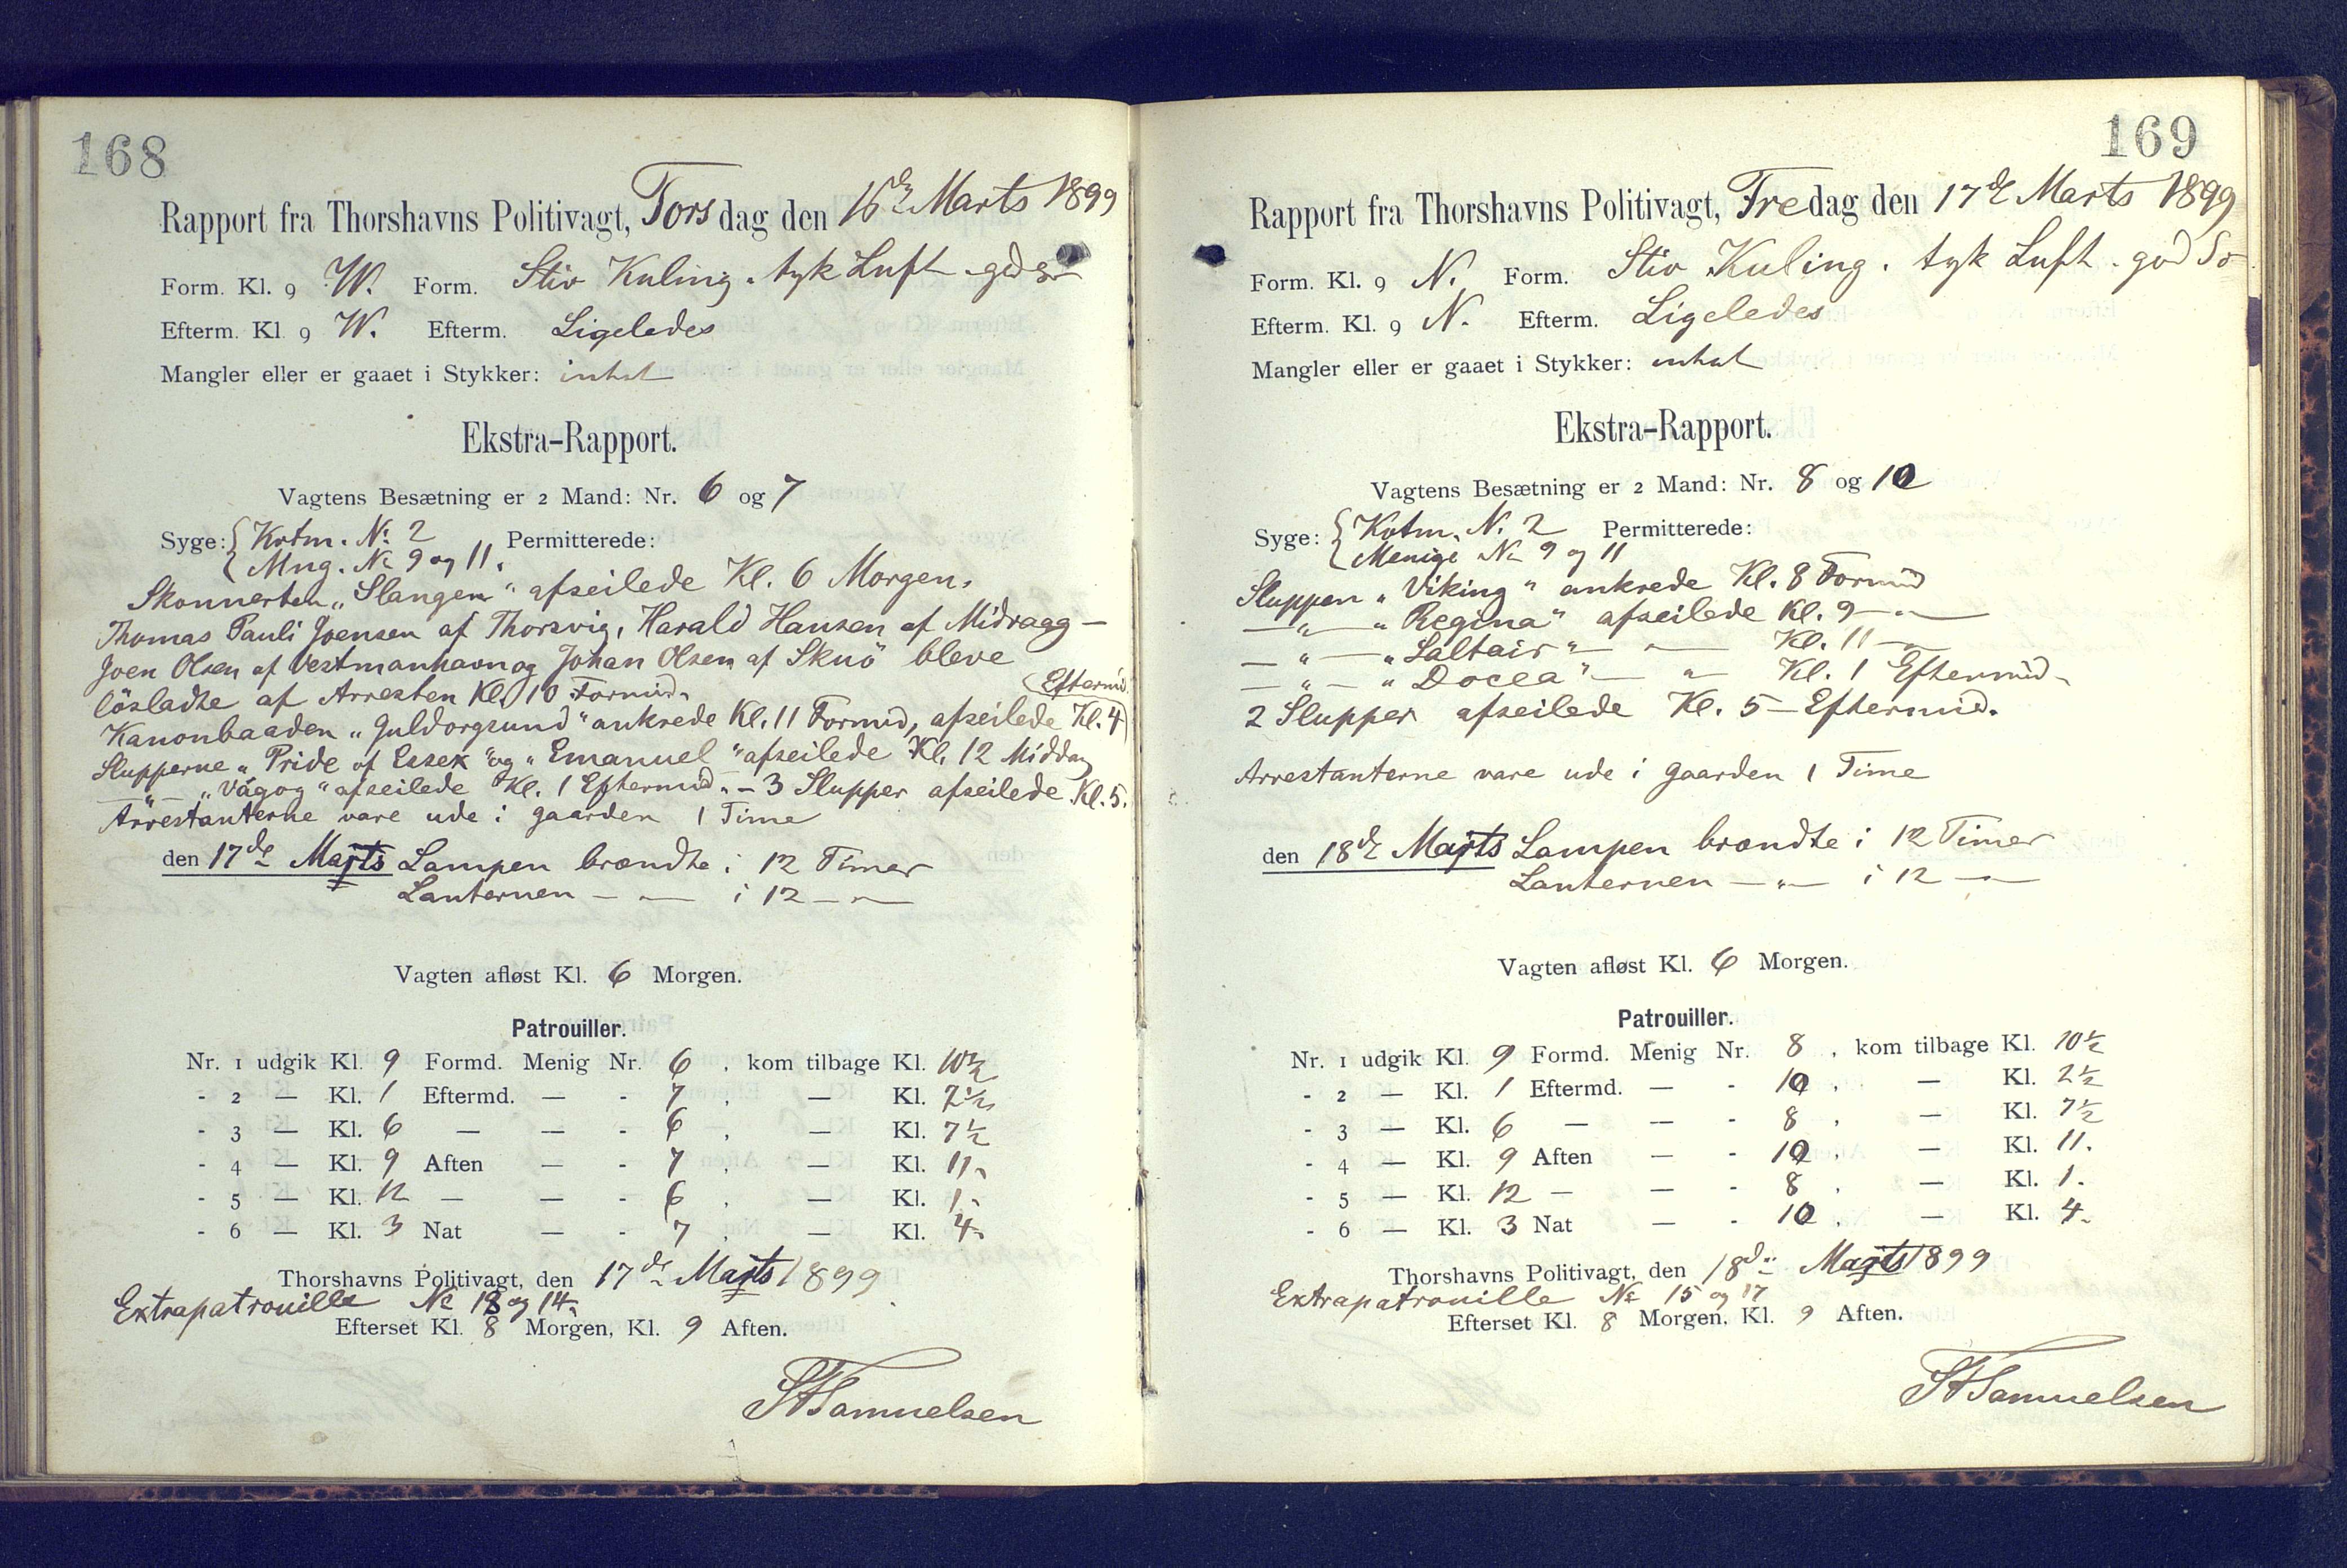 168
Rapport fra Thorshavns Politivagt, Torsdag den 16de Marts 1899
Form. Kl. 9 W. Form. Stiv Kuling. tyk Luft. god Sö
Efterm. Kl. 9 W. Efterm. Ligeledes
Mangler eller er gaaet i Stykker: intet
Ekstra-Rapport.
Vagtens Besætning er 2 Mand: Nr. 6 og 7
Syge: { Kotm. No 2 Permitterede:
Mng. No 9 og 11.
Skonnerten „Slangen“ afseilede Kl. 6 Morgen.
Thomas Pauli Joensen af Thorsvig, Harald Hansen af Midvaag –
Joen Olsen af Vestmanhavn og Johan Olsen af Skuö bleve
lösladte af Arresten Kl. 10 Formid.
(Eftermid.
Kanonbaaden „Guldorgsund“ ankrede Kl. 11 Formid, afseilede Kl. 4)
Slupperne „Pride of Essex“ og „Emanuel“ afseilede Kl. 12 Middag
— „ — „Vágog“ afseilede Kl. 1 Eftermid. – 3 Slupper afseilede Kl. 5.
Arrestanterne vare ude i Gaarden 1 Time
den 17de Marts Lampen brændte i 12 Timer
Lanternen — „ — i 12 — „ —
Vagten afløst Kl. 6 Morgen.
Patrouiller.
Nr. 1 udgik Kl. 9 Formd. Menig Nr. 6 , kom tilbage Kl. 10½
- 2 — Kl. 1 Eftermd. — - 7 , — Kl. 2½
- 3 — Kl. 6 — — - 6 , — Kl. 7½
- 4 — Kl. 9 Aften — - 7 , — Kl. 11.
- 5 — Kl. 12 — — - 6 , — Kl. 1.
- 6 — Kl. 3 Nat — - 7 , — Kl. 4.
Thorshavns Politivagt, den 17de Marts 1899
Extrapatrouille No 18 og 14.
Efterset Kl. 8 Morgen, Kl. 9 Aften.
Samuelsen
169
Rapport fra Thorshavns Politivagt, Fredag den 17de Marts 1899
Form. Kl. 9 N. Form. Stiv Kuling. tyk Luft. god Sö
Efterm. Kl. 9 N. Efterm. Ligeledes
Mangler eller er gaaet i Stykker: intet
Ekstra-Rapport.
Vagtens Besætning er 2 Mand: Nr. 8 og 10
Syge: { Kotm. N. 2 Permitterede:
Menige No 9 og 11
Sluppen „Viking“ ankrede Kl. 8 Formid
— „ — „Regina“ afseilede Kl. 9 — „ —
— „ — „Saltair“ — „ — Kl. 11 — „ —
— „ — „Docea“ — „ — Kl. 1 Eftermid.
2 Slupper afseilede Kl. 5 – Eftermid.
Arrestanterne vare ude i Gaarden 1 Time
den 18de Marts Lampen brændte i 12 Timer
Lanternen — „ — i 12 — „ —
Vagten afløst Kl. 6 Morgen.
Patrouiller.
Nr. 1 udgik Kl. 9 Formd. Menig Nr. 8 , kom tilbage Kl. 10½
- 2 — Kl. 1 Eftermd. — - 10 , — Kl. 2½
- 3 — Kl. 6 — — - 8 , — Kl. 7½
- 4 — Kl. 9 Aften — - 10 , — Kl. 11.
- 5 — Kl. 12 — — - 8 , — Kl. 1.
- 6 — Kl. 3 Nat — - 10 , — Kl. 4.
Thorshavns Politivagt, den 18de Marts 1899
Extrapatrouille No 15 og 17
Efterset Kl. 8 Morgen, Kl. 9 Aften.
Samuelsen